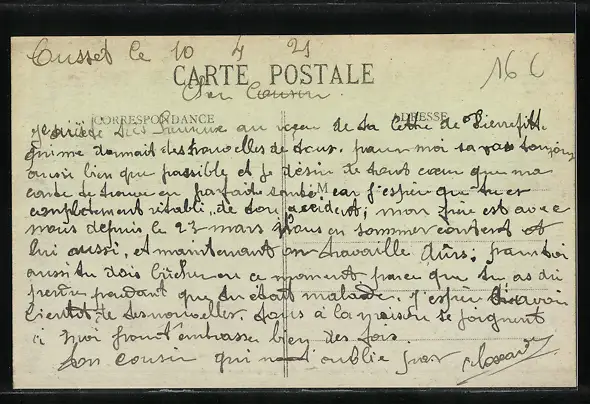 Cusset le 10 4 21
16 C
CARTE POSTALE
Cher Cousin
CORRESPONDANCE ADRESSE
Je suis très heureuse au reçu de ta lettre de Pierrefitte
qui me donnait des nouvelles de tous. pour moi sa vas toujours
aussi bien que possible et je désire de tout cœur que ma
carte te trouve en parfaite santé car j'espère que tu es
complètement rétabli de ton accident; mon frère est avec
nous depuis le 23 mars nous en sommes content et
lui aussi, et maintenant on travaille dûrs; pour toi
aussi tu dois bûcher en ce moment parce que tu as dû
perdre pendant que tu était malade. J'espère avoir
bientot de tes nouvelles. tous à la maison se joignent
à moi pour t'embrasser bien des fois.
Ton cousin qui t'oublie pas